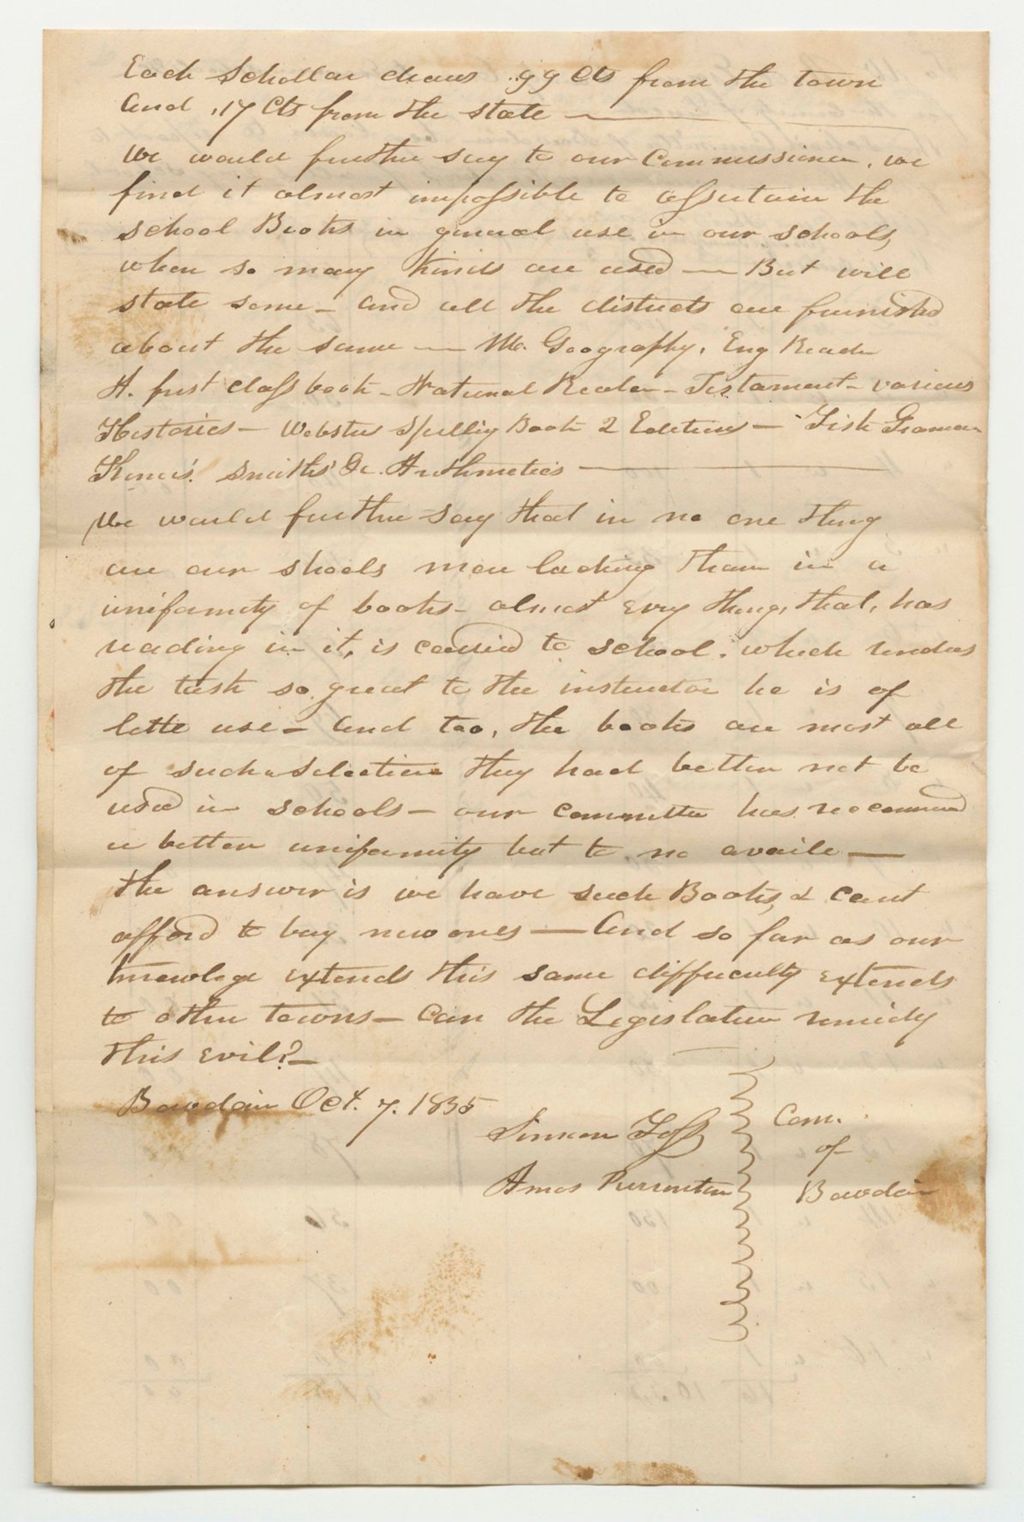 Each Schollar draws .99 Cts from the town
And .17 Cts from the state
We would further say to our Commissioner, we
find it almost impossible to assertain the
school Books in general use in our schools,
when so many kinds are used — But will
state some — and all the districts are furnished
about the same — Mo. Geography, Eng Reader
A. first class book — National Reader — Testament — various
Histories — Websters Spelling Book 2 Editions — Fisk Gramar
Kinnis. Smiths &c. Arithmetics
We would further say that in no one thing
are our shools more lacking than in a
uniformity of books — almost evry thing, that, has
reading in it, is carried to school. which renders
the task so great to the instructor he is of
little use — And too, the books are most all
of such a selection they had better not be
used in schools — our committee has recommend
a better uniformity but to no availe —
The answer is we have such Books, & cant
afford to buy new ones — And so far as our
knowlege extends this same diffuculty extends
to other towns — Can the Legislature remidy
this evil? —
Bowdoin Oct. 7. 1835
Simeon Foss Com.
of
Amos Purrinton Bowdoin